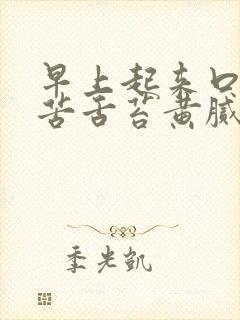 早上起来口
苦舌苔黄腻
季光凯